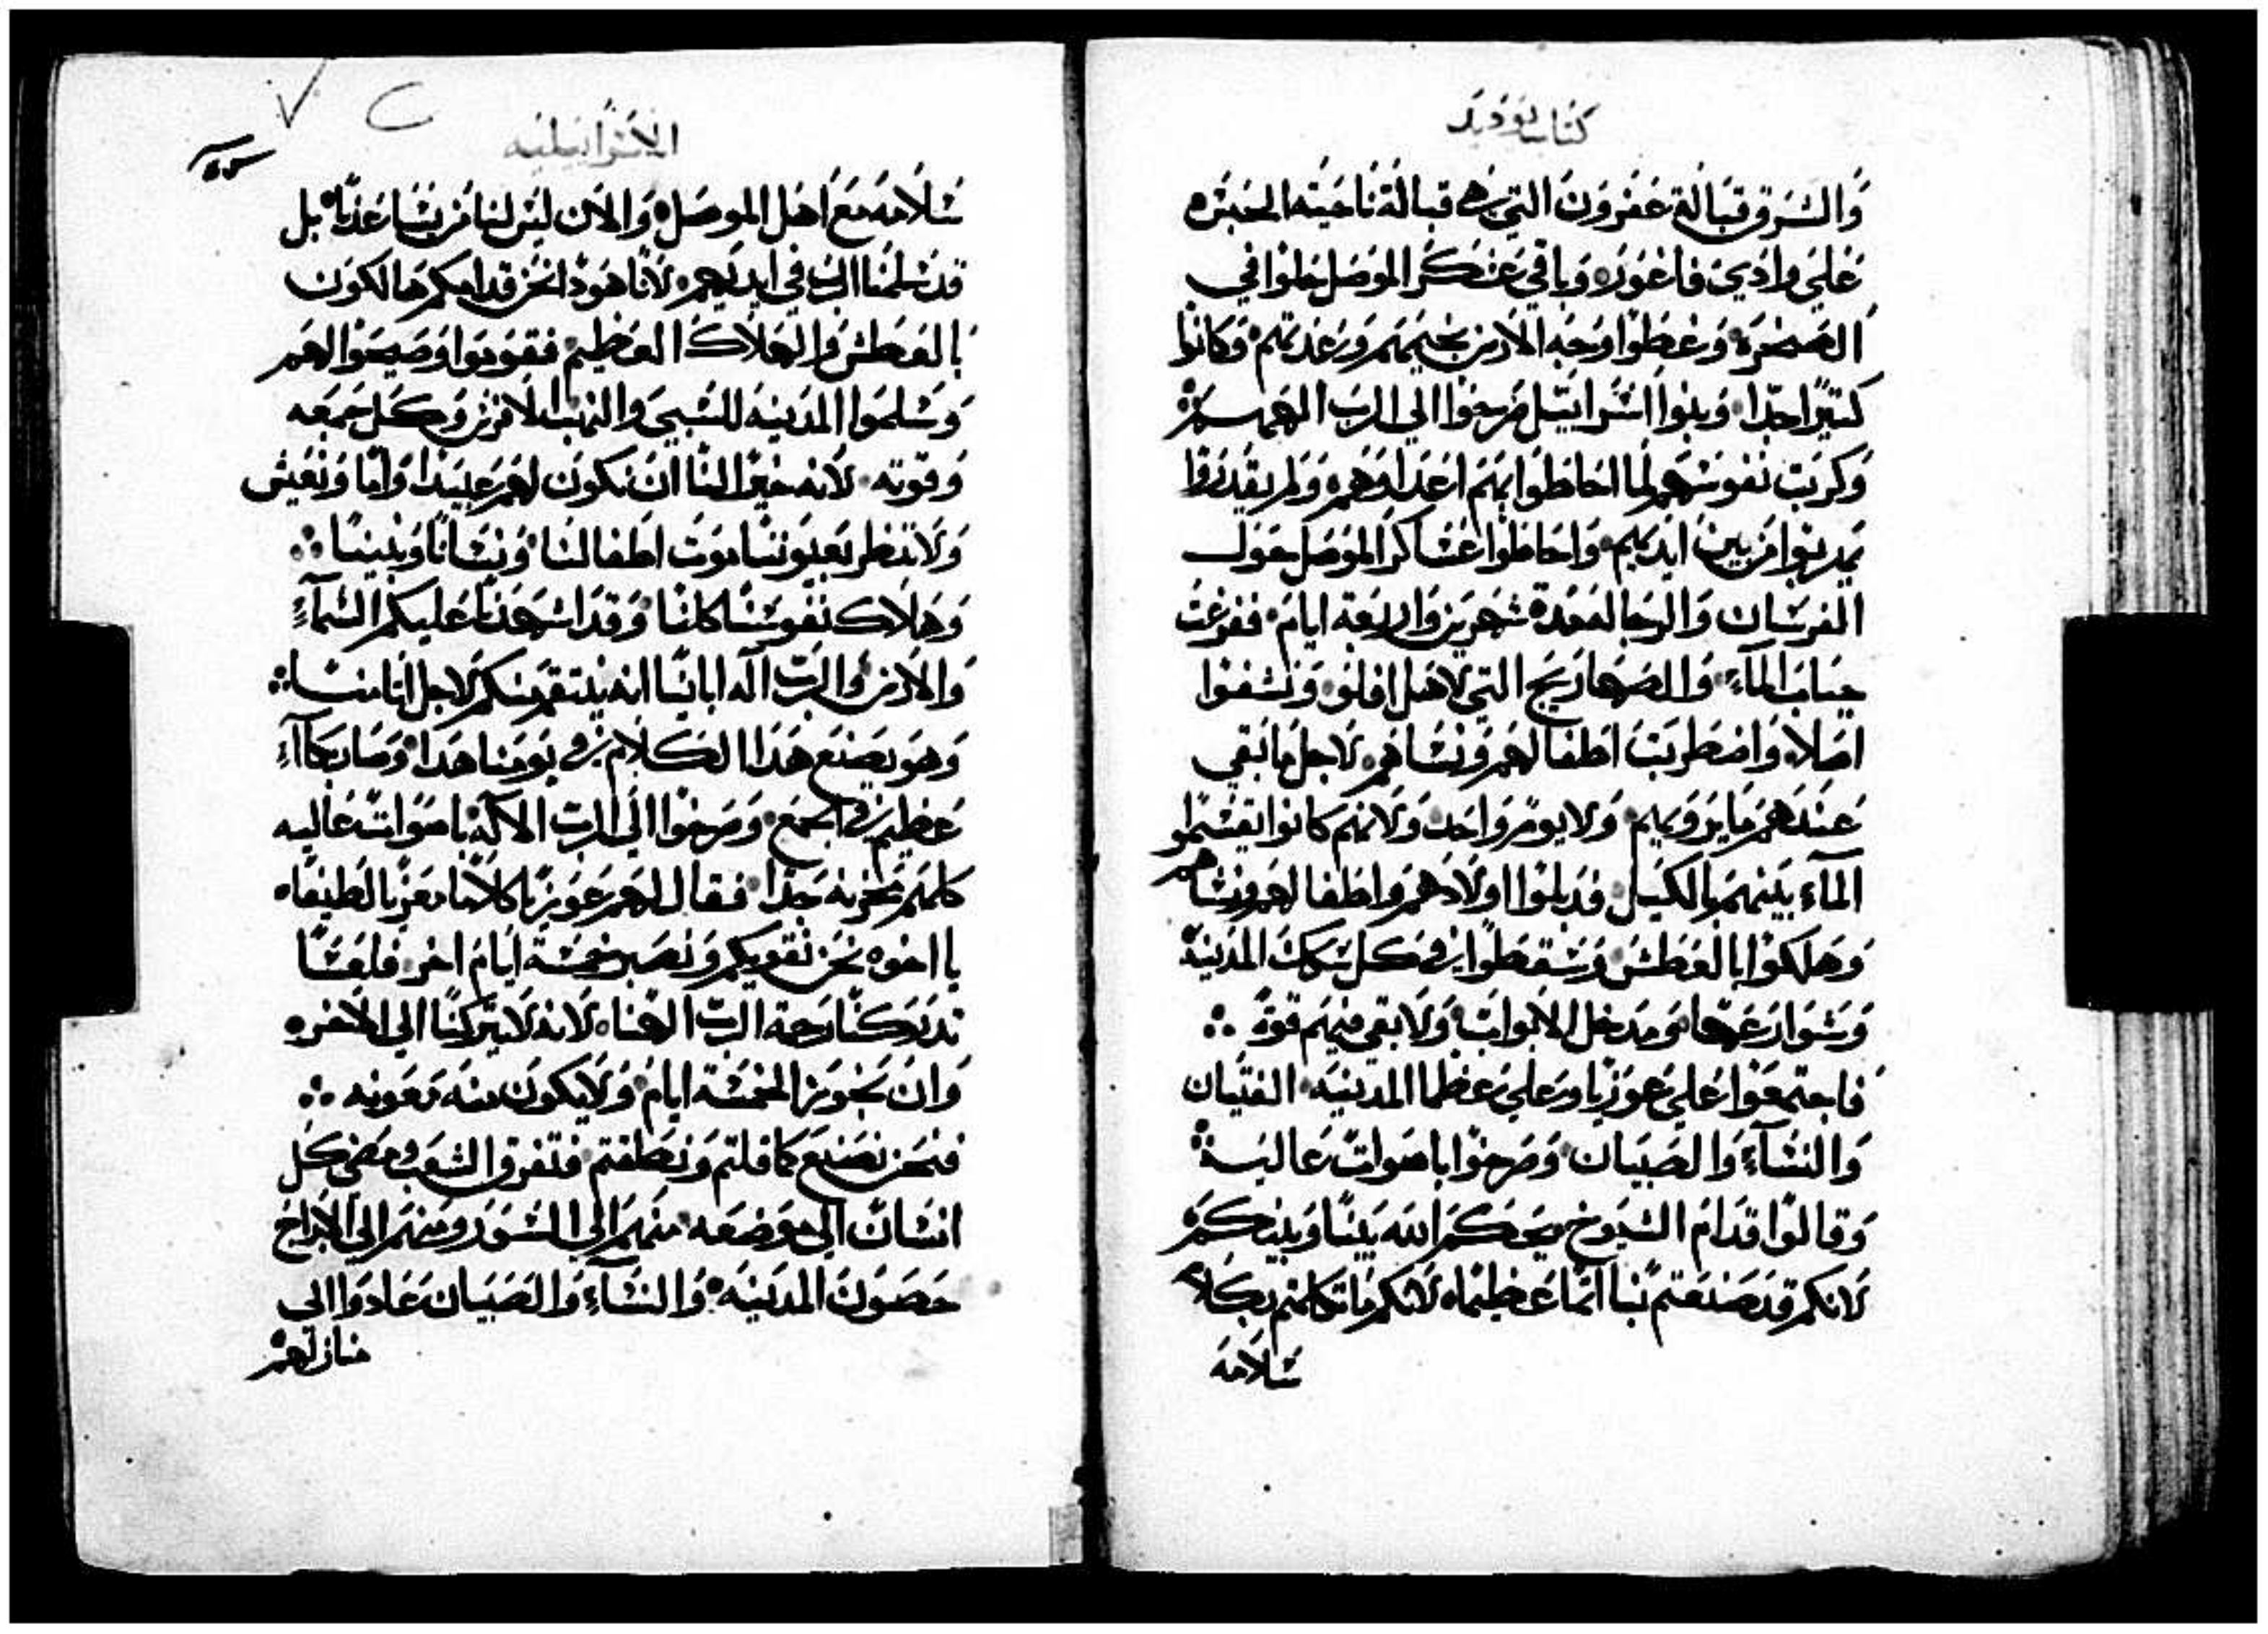 كتاب يوديد
والشرق قبالة عفرون التي هي قبالة ناحية الحبشه
علي وادي فاغور وباقي عسكر الموصل حلوا في
الصحره وغطوا وجه الارض بخيمهم وعدتهم وكانوا
كتيرا جدا وبنوا اسراييل صرخوا الي الرب الههم
وكربت نفوسهم لما احاطوا بهم اعداوهم ولم يقدروا
يهربوا من بين ايديهم واحاطوا عساكر الموصل حول
الفرسان والرجاله مدة شهرين واربعة ايام ففرغت
جباب الماء والصهاريج التي لاهل افلو ونشفوا
اصلا واضطربت اطفالهم ونساهم لاجل ما بقي
عندهم ما يرويهم ولا يوم واحد ولانهم كانوا يقسموا
الماء بينهم بالكيل فدبلوا اولادهم واطفالهم ونساهم
وهلكوا بالعطش وسقطوا في كل سكك المدينة
وشوارعها ومدخل الابواب ولا بقي فيهم قوة
فاجتمعوا علي عوزيا وعلي عظما المدينه الفتيان
والنساء والصبيان وصرخوا باصوات عاليه
وقالوا قدام الشيوخ يحكم الله بيننا وبينكم
لانكم قد صنعتم بنا اتما عظيما لانكم ما تكلمتم بكلام
سلامه
الاسراييليه
سلامه مع اهل الموصل والان ليس لنا من يساعدنا بل
قد سلمنا الرب في ايديهم لانا هوذا نحن قدامكم هالكون
بالعطش والهلاك العظيم فقوموا وصيحوا الهم
وسلموا المدينه للسبي والنهب لافرنس وكل جمعه
وقوته لانه خيرا لنا ان نكون لهم عبيدا واما ونعيش
ولا ننظر بعيوننا موت اطفالنا ونسانا وبنينا
وهلاك نفوسنا كلنا وقد اشهدنا عليكم السماء
والارض والرب اله ابانا انه ينتقم منكم لاجل اتامنا
وهو يصنع هذا الكلام في يومنا هدا وصار بكاء
عظيم في الجمع وصرخوا الي الرب الاله باصوات عاليه
كلهم بحزنه جدا فقال لهم عوزيا كلاما معزيا لطيفا
يا اخوه نحن نقويكم ونصبر خمسة ايام اخر فلعسا
تدركنا رحمة الرب الهنا لانه لا يتركنا الي الاخره
وان تجوز الخمسة ايام ولا يكون منه معونه
فنحن نصنع كما قلتم ونطقتم فتفرق الشعب ومضي كل
انسان الي موضعه منهم الي السور ومنهم الي الابراج
حصون المدينه والنساء والصبيان عادوا الي
منازلهم